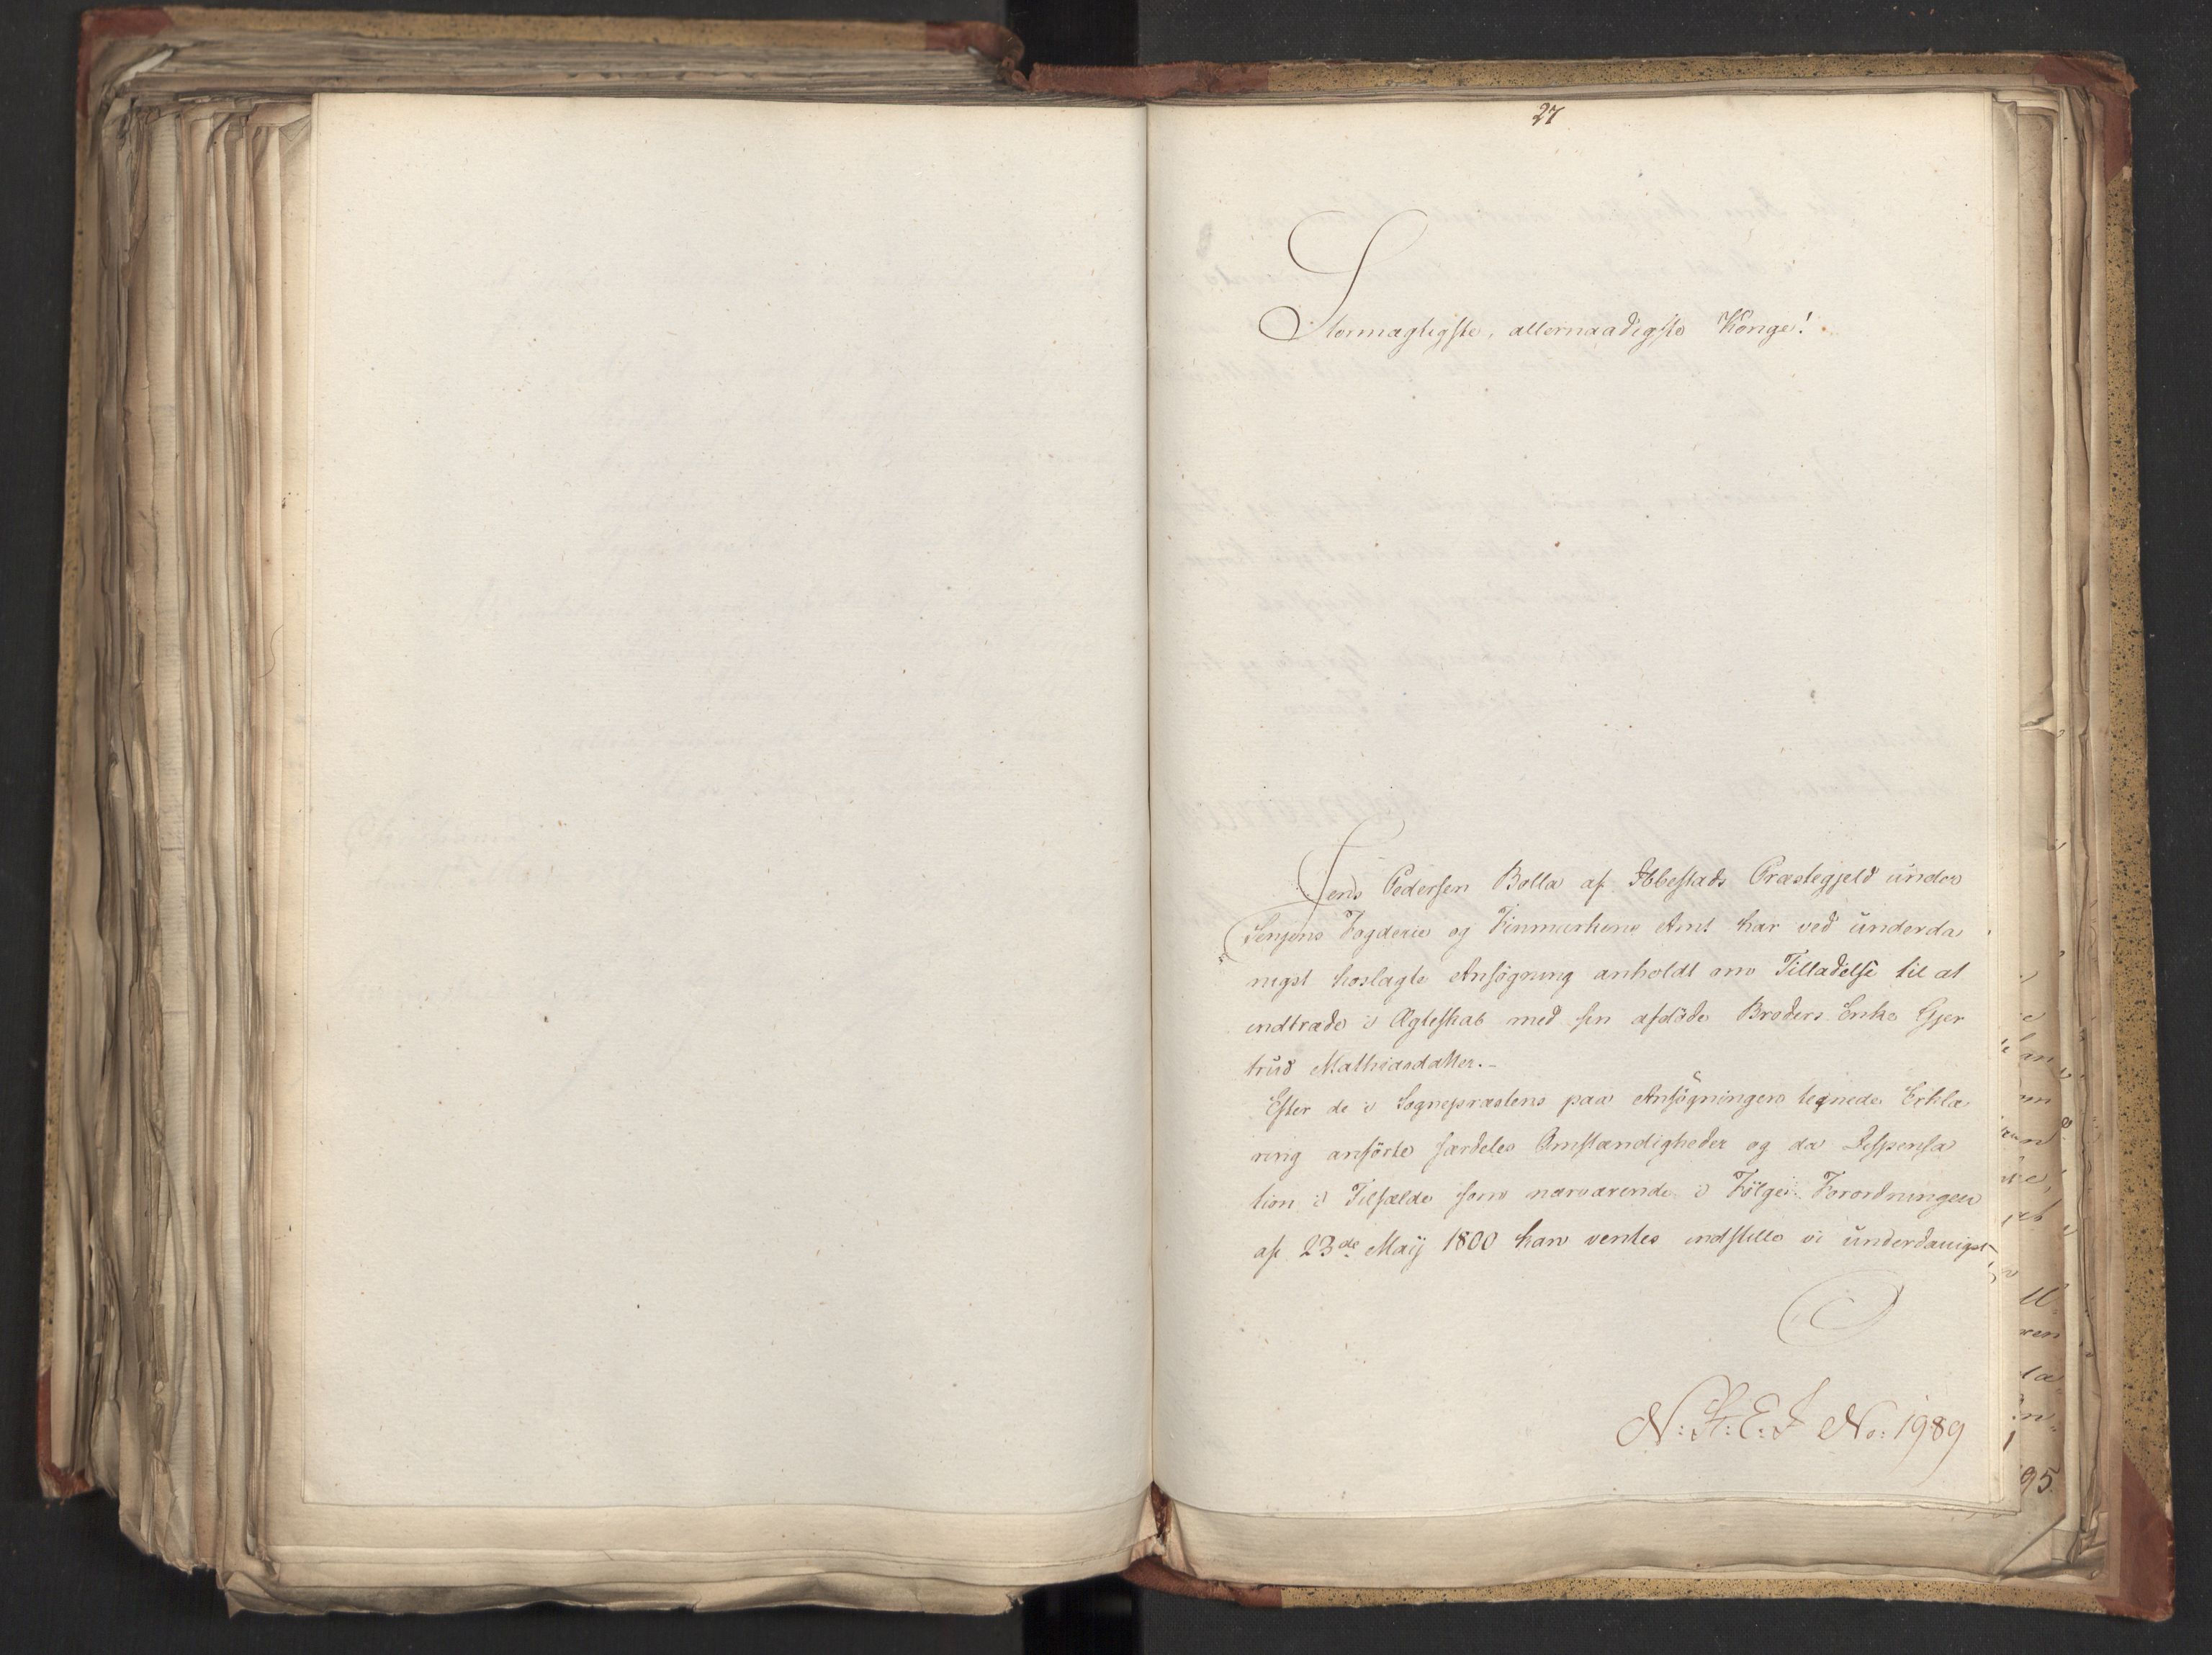 27
Stormægtigste, allernaadigste Konge!
Jens Pedersen Bolla af Ibbestads Præstegjeld under
Senjens Fogderie og Finmarkens Amt har ved underda
nigst hoslagte Ansögning anholdt om Tilladelse til at
indtræde i Ægteskab med sin afdöde Broders Enke Gjer
trud Mathiasdatter.-
Efter de i Sognepræstens paa Ansögningen tegnede Erklæ
ring anförte særdeles Omstændigheder og da Dispensa
tion i Tilfælde som nærværende i Fölge Forordningen
af 23de Maij 1800 kan ventes indstille vi underdanigst
N: R: E: J No: 1989